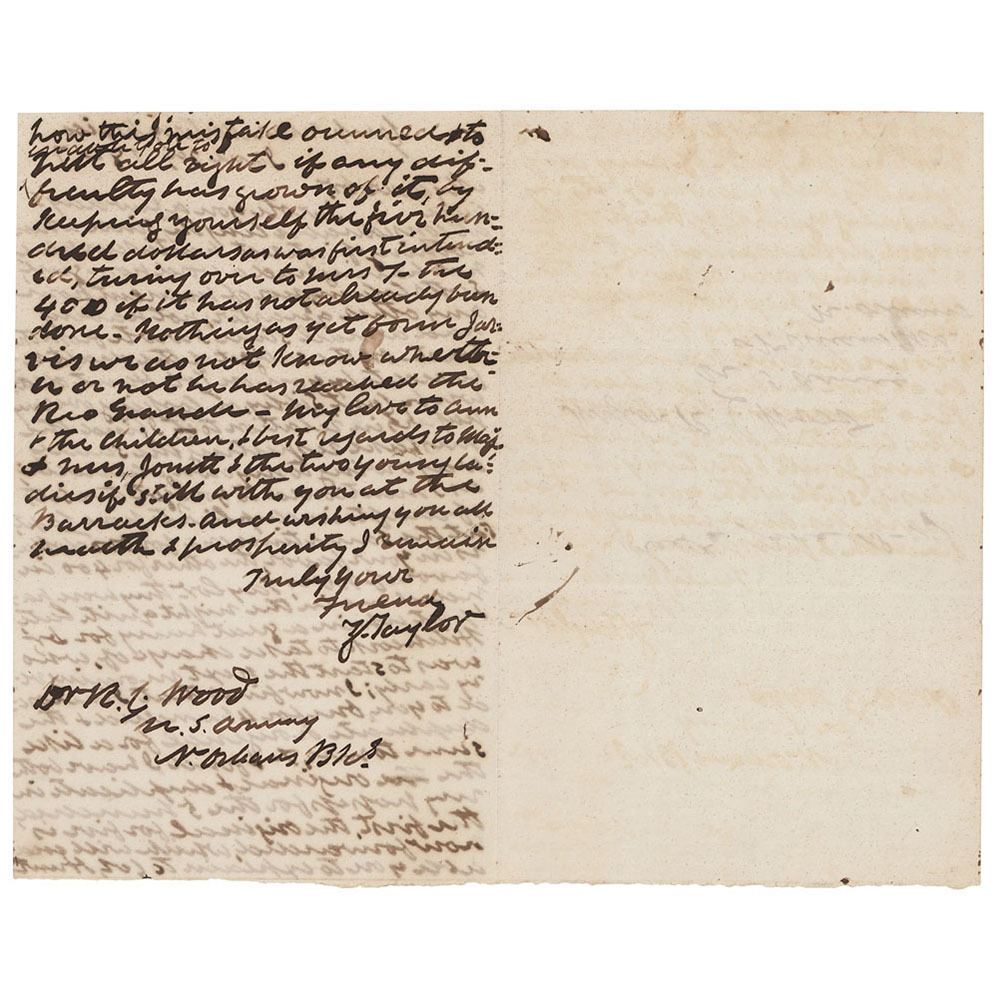 how this mistake occurred & to
enable you to
putt all right if any dif-
ficulty has grown of it, by
keeping yourself the five hun-
dred dollars as was first intend-
ed, turing over to Mrs T. the
400 if it has not already been
done - Nothing as yet from Jar-
vis we do not know wheth-
er or not he has reached the
Rio Grande - My love to Ann
& the children, & best regards to Maj.
& Mrs, Jouett & the two young la-
dies if still with you at the
Barracks. And wishing you all
health & prosperity I remain
Truly your
Friend
Z. Taylor
Dr R. C. Wood
U. S. Army
N. Orleans Bks